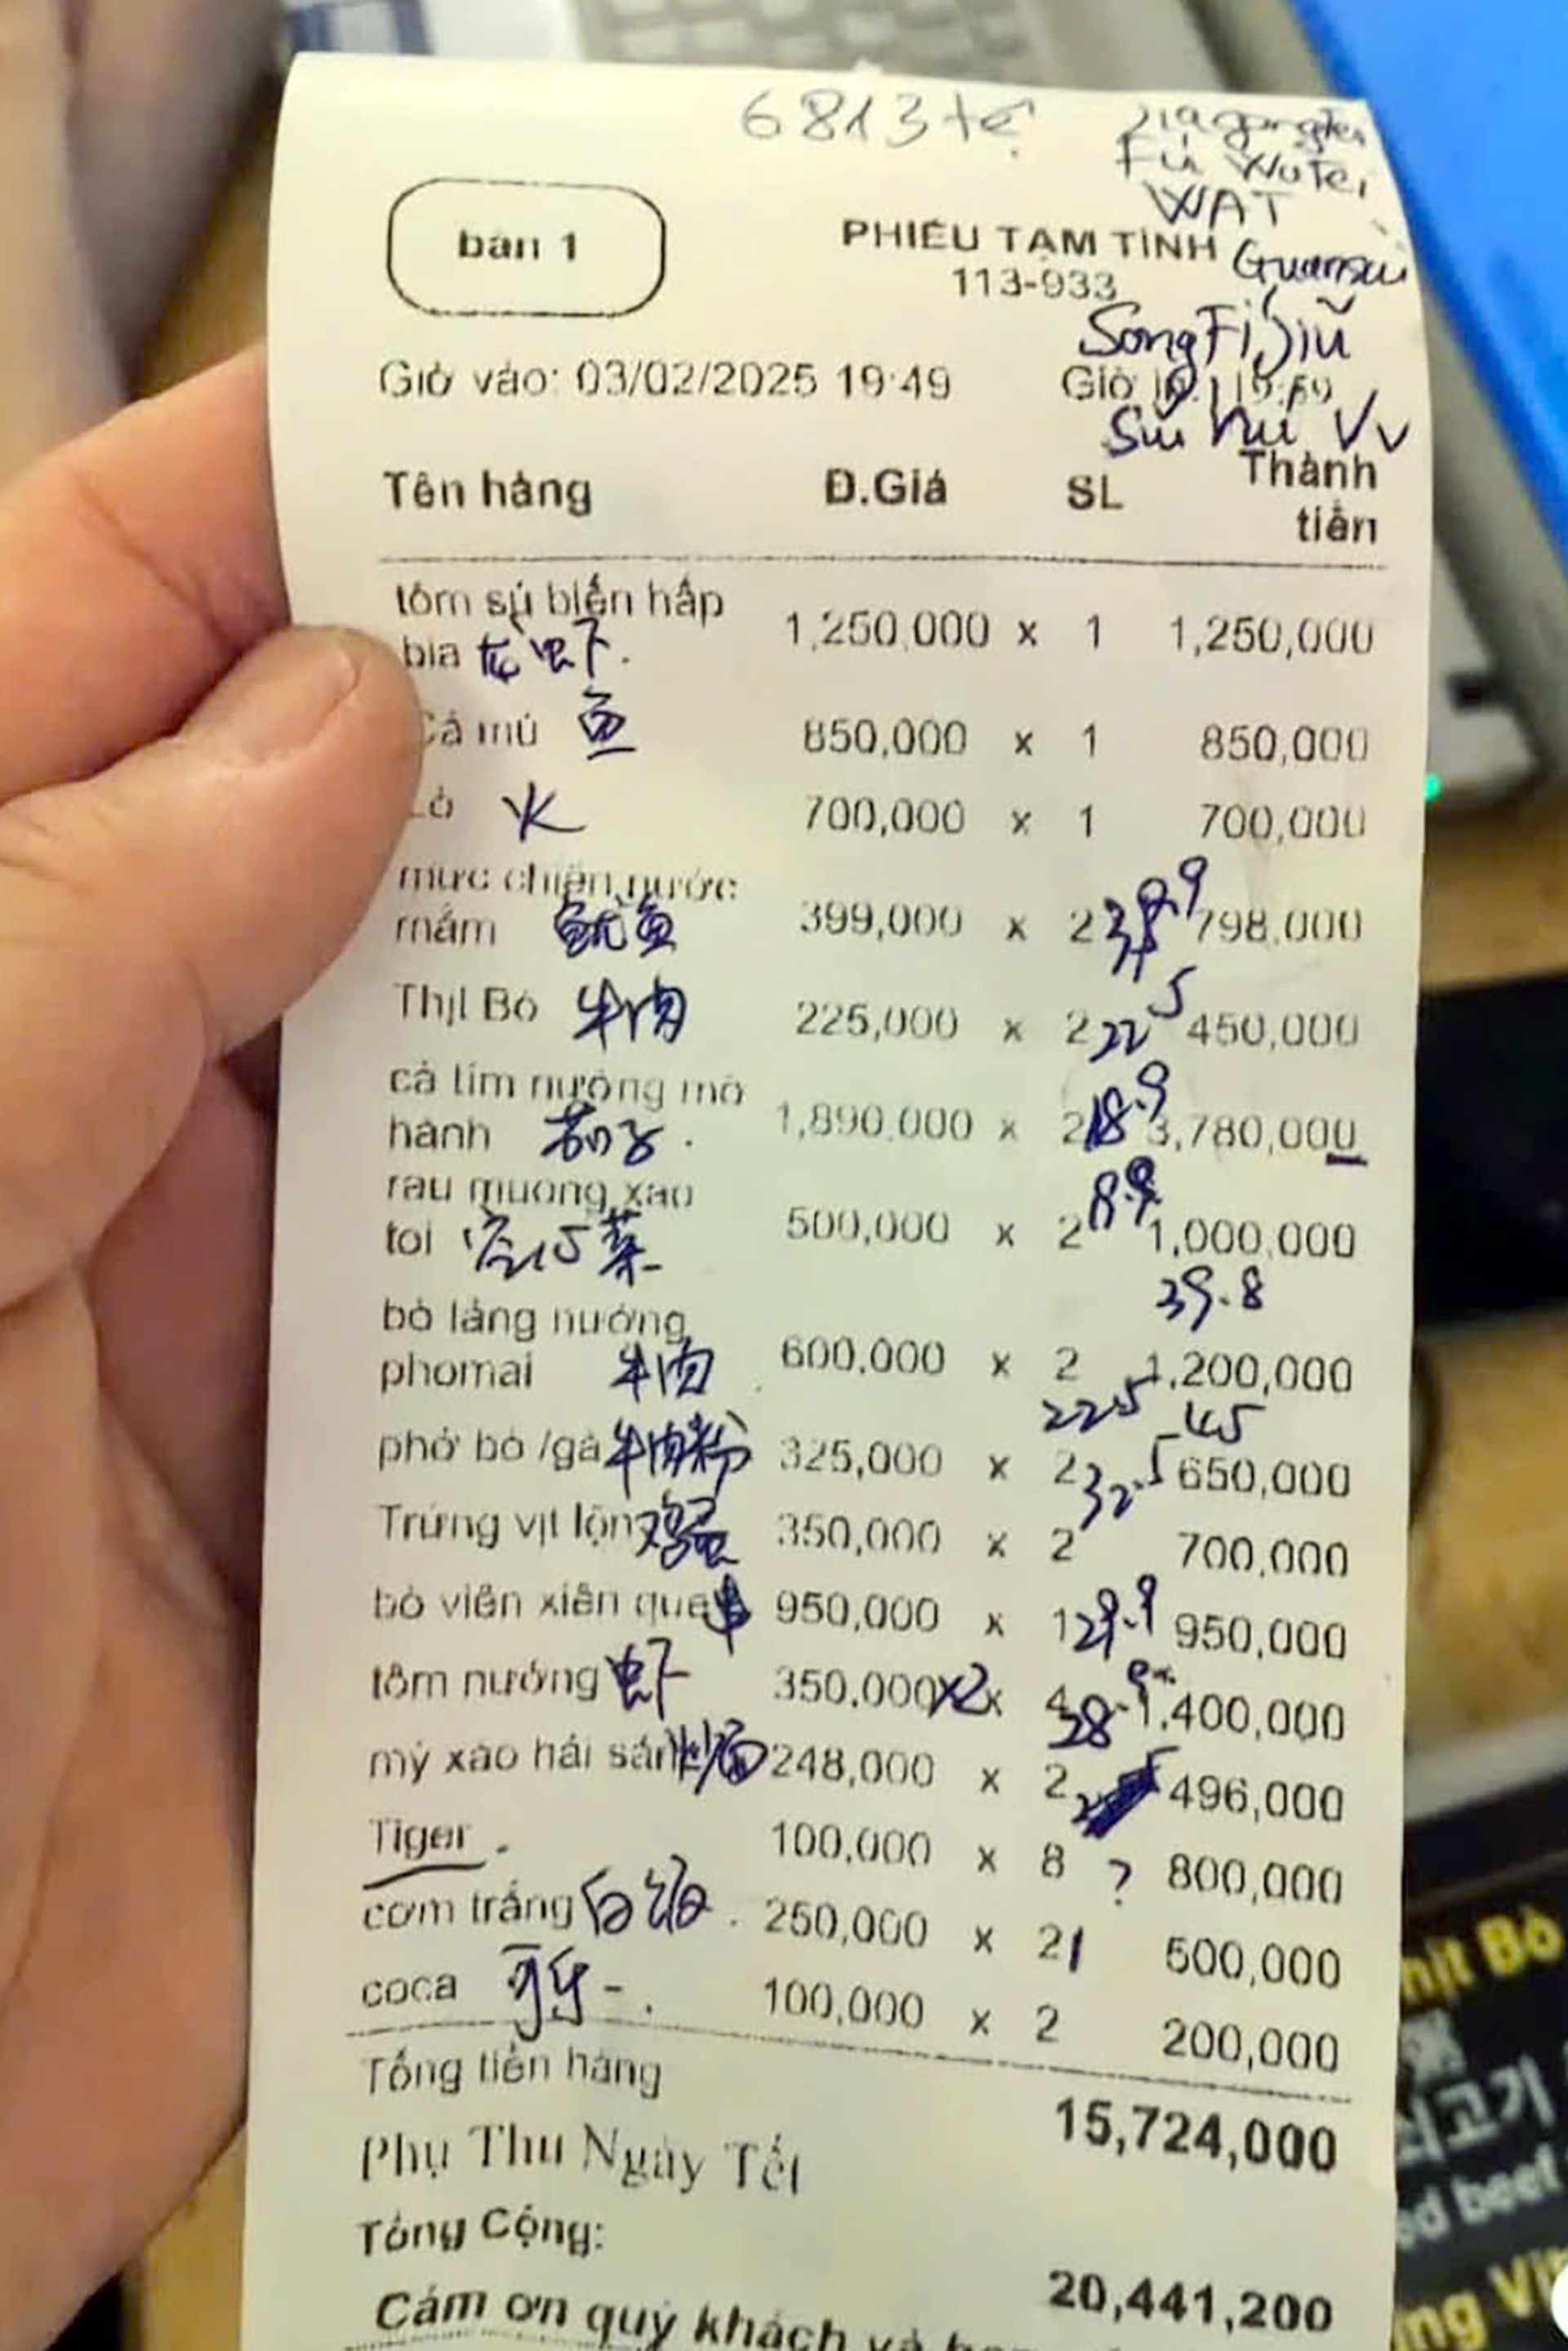 6813 tệ
Fu WuTei
WAT
bàn 1
PHIẾU TẠM TÍNH
113-933
SongFiJiũ
Giờ vào: 03/02/2025 19:49
Giờ
Tên hàng Đ.Giá SL Thành tiền
tôm sú biển hấp
bia 虾. 1,250,000 x 1 1,250,000
Cá mú 鱼 850,000 x 1 850,000
火 700,000 x 1 700,000
mực chiên nước
mắm 鱿鱼 399,000 x 2 798,000
Thịt Bò 牛肉 225,000 x 2 22.5 450,000
cà tím nướng mỡ
hành 茄子. 1,890,000 x 2 18.9 3,780,000
rau muống xào
tỏi 菜 500,000 x 2 1,000,000
39.8
bò lảng nướng
phomai 牛肉 600,000 x 2 1,200,000
22.5 45
phở bò /gà 牛肉粉 325,000 x 2 32.5 650,000
Trứng vịt lộn 鸡蛋 350,000 x 2 700,000
bò viên xiên que 串 950,000 x 1 29.9 950,000
tôm nướng 虾 350,000 x2 x 4 1,400,000
mỳ xào hải sản 炒面 248,000 x 2 496,000
Tiger. 100,000 x 8 ? 800,000
cơm trắng 白饭. 250,000 x 2 1 500,000
coca 100,000 x 2 200,000
Tổng tiền hàng
15,724,000
Phụ Thu Ngày Tết
Tổng Cộng:
20,441,200
Cảm ơn quý khách và
hịt Bò
쇠고기
ed beef